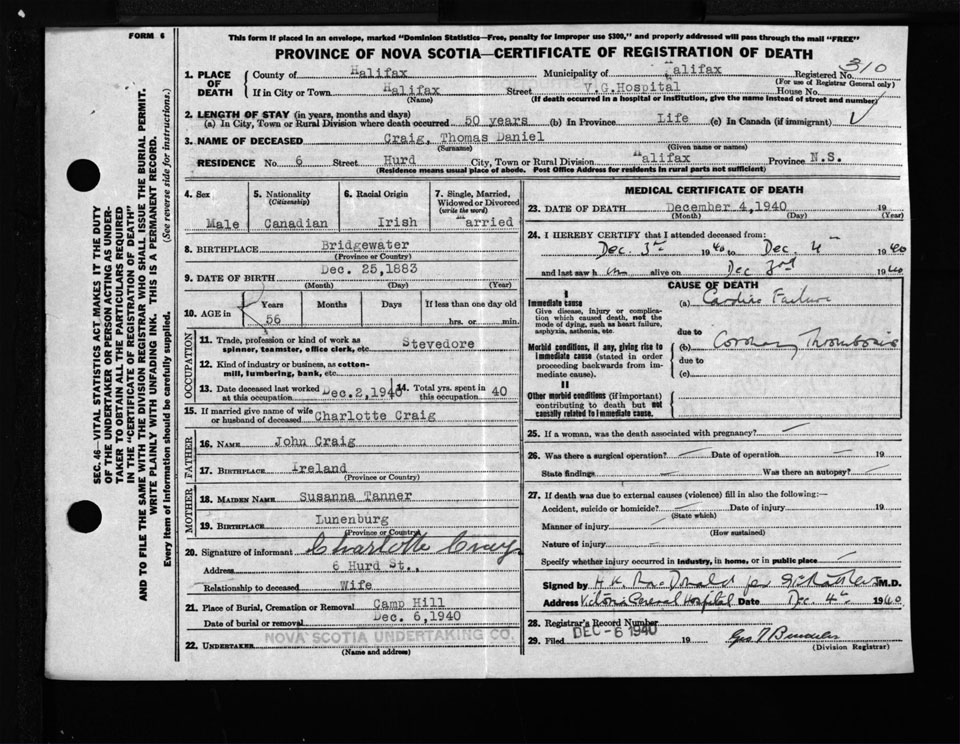 FORM 6
This form if placed in an envelope, marked "Dominion Statistics—Free, penalty for improper use $300," and properly addressed will pass through the mail "FREE"
PROVINCE OF NOVA SCOTIA—CERTIFICATE OF REGISTRATION OF DEATH
310
1. PLACE OF DEATH
County of Halifax Municipality of Halifax Registered No.
(For use of Registrar General only)
If in City or Town Halifax Street V.G.Hospital House No.
(Name) (If death occurred in a hospital or institution, give the name instead of street and number)
2. LENGTH OF STAY (in years, months and days)
(a) In City, Town or Rural Division where death occurred 50 years (b) In Province Life (c) In Canada (if immigrant)
3. NAME OF DECEASED Craig, Thomas Daniel
(Surname) (Given name or names)
RESIDENCE No. 6 Street Hurd City, Town or Rural Division Halifax Province N.S.
(Residence means usual place of abode. Post Office Address for residents in rural parts not sufficient)
4. Sex Male
5. Nationality (Citizenship) Canadian
6. Racial Origin Irish
7. Single, Married, Widowed or Divorced (write the word) Married
8. BIRTHPLACE Bridgewater
(Province or Country)
9. DATE OF BIRTH Dec. 25,1883
(Month) (Day) (Year)
10. AGE in Years Months Days If less than one day old
56 hrs. or min.
OCCUPATION
11. Trade, profession or kind of work as spinner, teamster, office clerk, etc. Stevedore
12. Kind of industry or business, as cotton-mill, lumbering, bank, etc.
13. Date deceased last worked at this occupation Dec.2,1940
14. Total yrs. spent in this occupation 40
15. If married give name of wife or husband of deceased Charlotte Craig
FATHER
16. NAME John Craig
17. BIRTHPLACE Ireland
(Province or Country)
MOTHER
18. MAIDEN NAME Susanna Tanner
19. BIRTHPLACE Lunenburg
(Province or Country)
20. Signature of informant Charlotte Craig
Address 6 Hurd St.,
Relationship to deceased Wife
21. Place of Burial, Cremation or Removal Camp Hill
Date of burial or removal Dec. 6,1940
22. UNDERTAKER NOVA SCOTIA UNDERTAKING CO.
(Name and address)
MEDICAL CERTIFICATE OF DEATH
23. DATE OF DEATH December 4,1940 19
(Month) (Day) (Year)
24. I HEREBY CERTIFY that I attended deceased from:
Dec. 3rd 1940 to Dec 4th 1940
and last saw him alive on Dec 3rd 1940
CAUSE OF DEATH
I
Immediate cause (a) Cardiac Failure
Give disease, injury or complication which caused death, not the mode of dying, such as heart failure, asphyxia, asthenia, etc.
due to
Morbid conditions, if any, giving rise to immediate cause (stated in order proceeding backwards from immediate cause).
(b) Coronary Thrombosis
due to
(c)
II
Other morbid conditions (if important) contributing to death but not causally related to immediate cause.
25. If a woman, was the death associated with pregnancy?
26. Was there a surgical operation? Date of operation 19
State findings Was there an autopsy?
27. If death was due to external causes (violence) fill in also the following:—
Accident, suicide or homicide? Date of injury 19
(State which)
Manner of injury
(How sustained)
Nature of injury
Specify whether injury occurred in industry, in home, or in public place
Signed by H.K. MacDonald per M.D.
Address Victoria General Hospital Date Dec. 4th 1940
28. Registrar's Record Number
29. Filed DEC -6 1940 19
(Division Registrar)
SEC. 46—VITAL STATISTICS ACT MAKES IT THE DUTY
OF THE UNDERTAKER OR PERSON ACTING AS UNDERTAKER
TO OBTAIN ALL THE PARTICULARS REQUIRED
IN THE "CERTIFICATE OF REGISTRATION OF DEATH"
AND TO FILE THE SAME WITH THE DIVISION REGISTRAR WHO SHALL ISSUE THE BURIAL PERMIT.
WRITE PLAINLY WITH UNFADING INK. THIS IS A PERMANENT RECORD.
Every item of information should be carefully supplied. (See reverse side for instructions.)